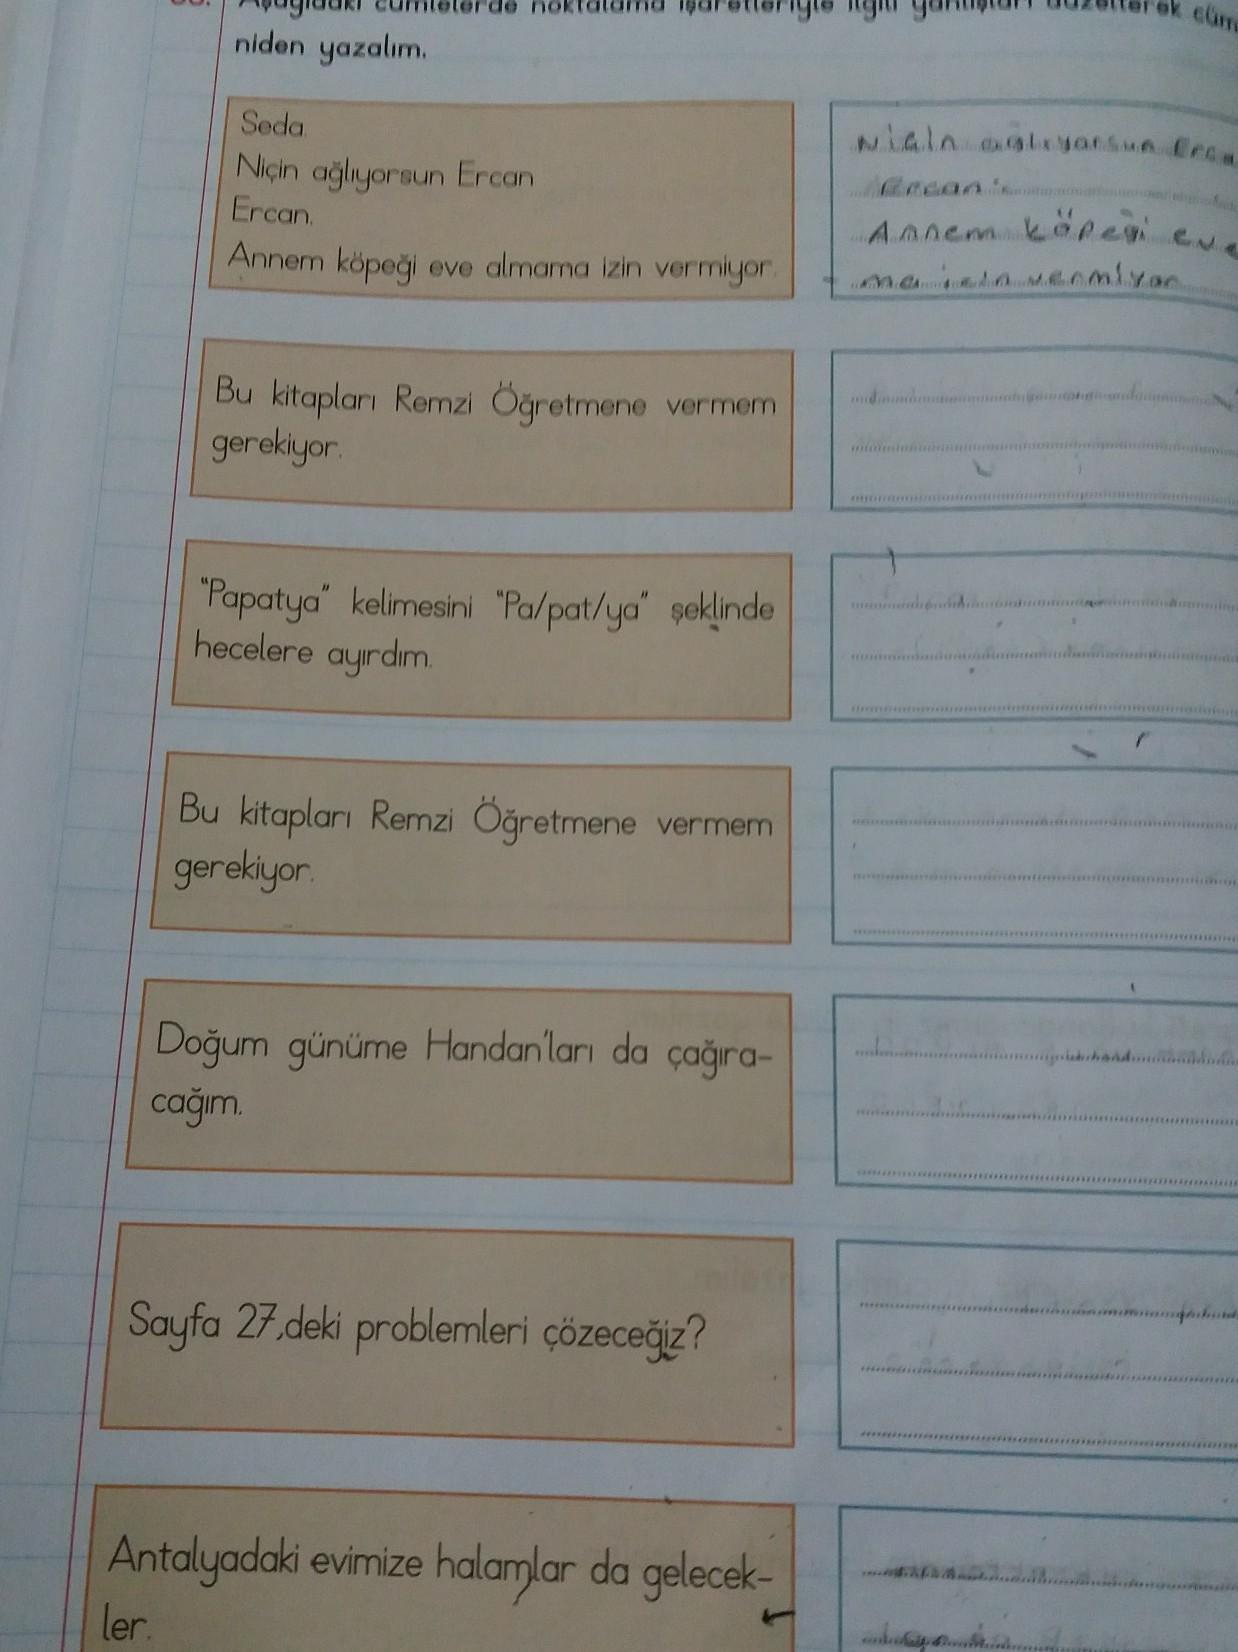 Aşağıdaki cümlelerde noktalama işaretleriyle ilgili yanlışları düzelterek cüm
niden yazalım.
Seda.
Niçin ağlıyorsun Ercan
Ercan.
Annem köpeği eve almama izin vermiyor.
Niçin ağlıyorsun Erca
Ercan:
Annem köpeği eve
ma izin vermiyor
Bu kitapları Remzi Öğretmene vermem
gerekiyor.
"Papatya" kelimesini "Pa/pat/ya" şeklinde
hecelere ayırdım.
Bu kitapları Remzi Öğretmene vermem
gerekiyor.
Doğum günüme Handan'ları da çağıra-
cağım.
Sayfa 27,deki problemleri çözeceğiz?
Antalyadaki evimize halamlar da gelecek-
ler.